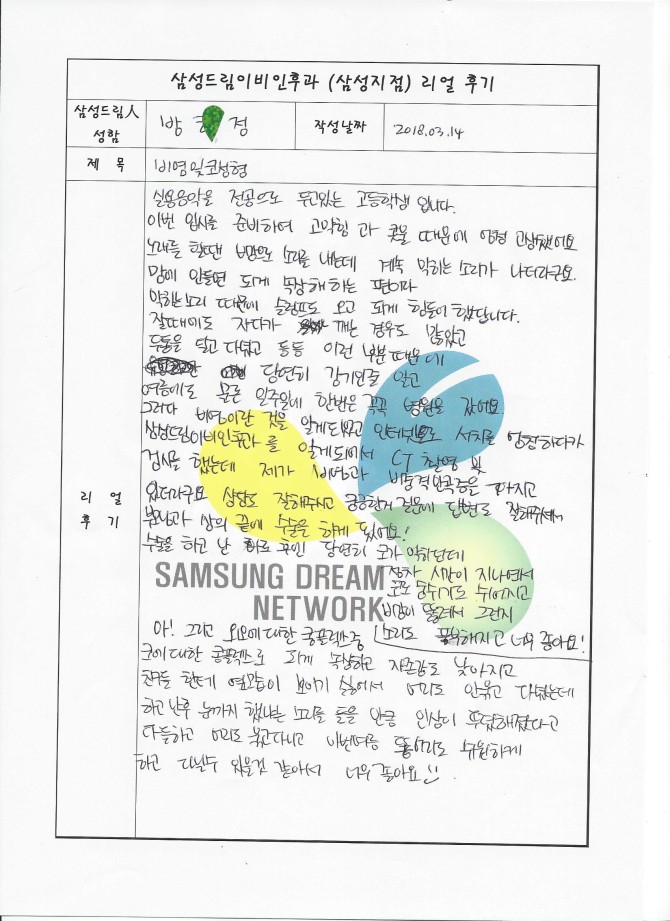 삼성드림이비인후과 (삼성지점) 리얼 후기
삼성드림人 성함
방 정
작성날짜
2018.03.14
제 목
비염 및 코성형
리 얼 후 기
실용음악을 전공으로 두고있는 고등학생 입니다.
이번 입시를 준비하여 코막힘 과 콧물 때문에 엄청 고생했어요
노래를 할땐 비강으로 소리를 내는데 계속 막히는 소리가 나더라구요.
맘에 안들면 되게 속상해 하는 편이라
막히는소리 때문에 슬럼프도 오고 되게 힘들어 했답니다.
잘때에도 자다가 깨는 경우도 많았고
두통을 달고 다녔고 등등 이런 부분때문에
당연히 감기인줄 알고
여름에도 물론 일주일에 한번은 꼭꼭 병원을 갔어요.
그러다 비염이란 것을 알게되었고 인터넷으로 서치를 엄청하다가
삼성드림이비인후과를 알게되어서 CT 촬영 및
검사를 했는데 제가 비염과 비중격만곡증을 가지고
있더라구요 상담도 잘해주시고 궁금한거 질문에 답변도 잘해주셔서
부모님과 상의 끝에 수술을 하게 됐어요!
수술을 하고 난 후인 당연히 코가 막히던데
점차 시간이 지나면서
코로 숨쉬기도 쉬어지고
비강이 뚫려서 그런지
소리도 풍부해지고 너무 좋아요!
아! 그리고 외모에 대한 콤플렉스중
코에대한 콤플렉스로 되게 속상하고 자존감도 낮아지고
친구들 한테 옆모습이 보이기 싫어서 머리도 안묶고 다녔는데
하고 난후 눈까지 했냐는 소리를 들을 만큼 인상이 뚜렷해졌다고
다들하고 머리도 묶고다니고 이번여름 똥머리도 시원하게
하고 다닐수 있을것 같아서 너무 좋아요
SAMSUNG DREAM
NETWORK